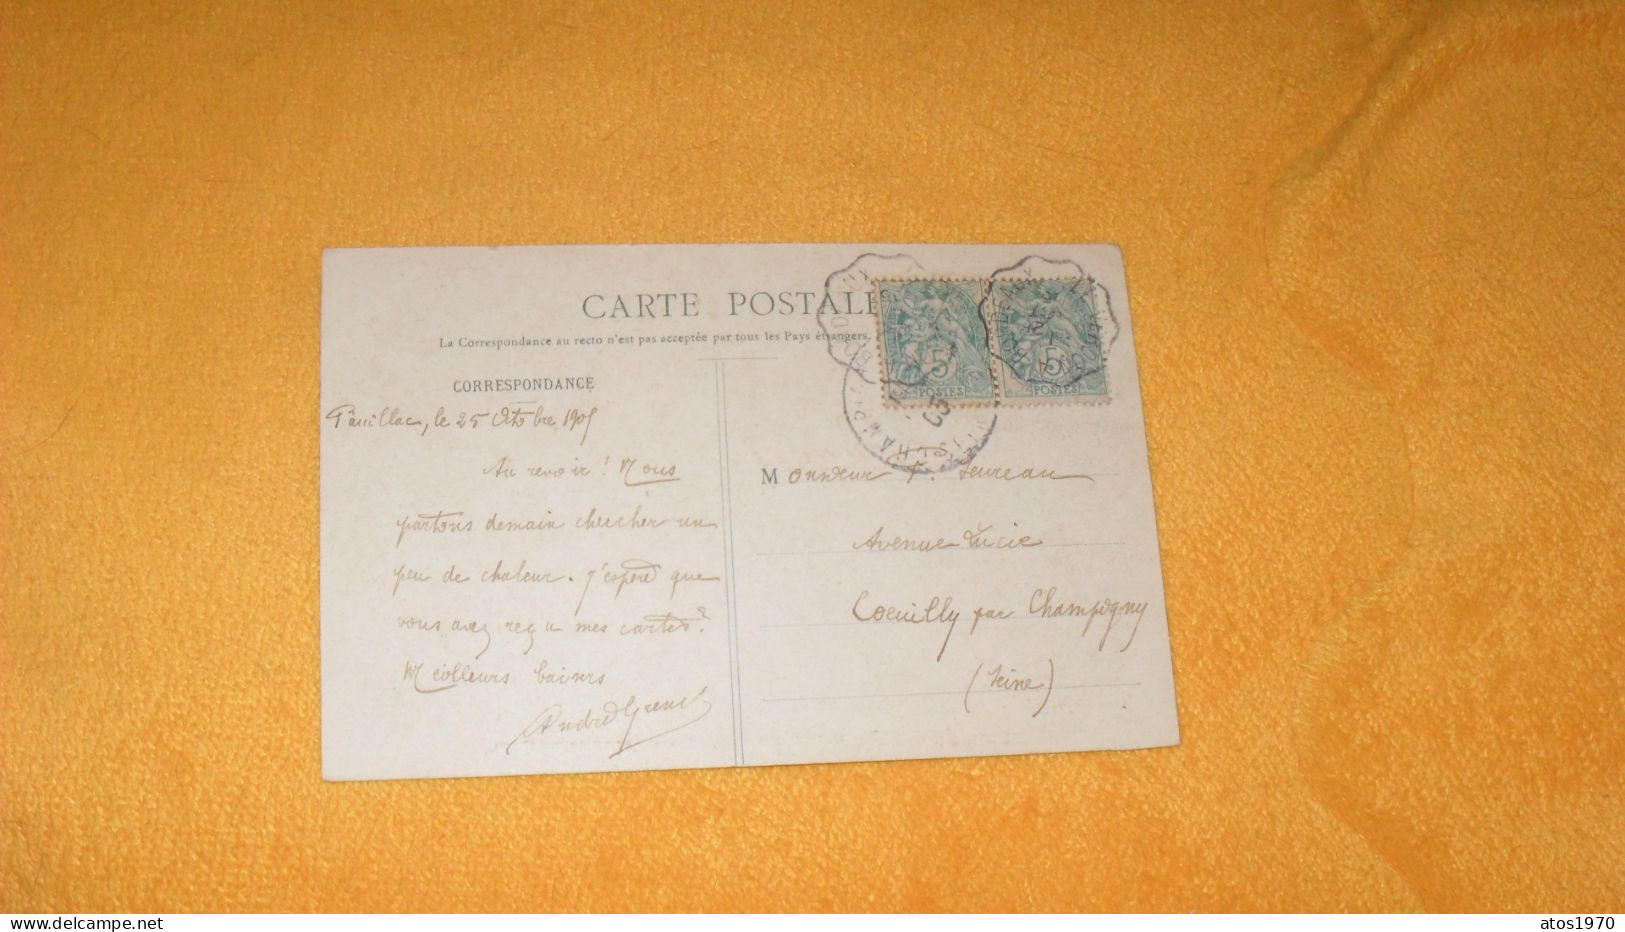 CARTE POSTALE
La Correspondance au recto n'est pas acceptée par tous les Pays étrangers.
CORRESPONDANCE
Pauillac, le 25 Octobre 1905
Au revoir ! Nous
partons demain chercher un
peu de chaleur. J'espère que
vous avez reçu mes cartes?
Meilleurs baisers
André
Monsieur
Avenue Lucie
Coeuilly par Champigny
(Seine)
5
POSTES
5
POSTES
BORDEAUX
05
www.delcampe.net
atos1970